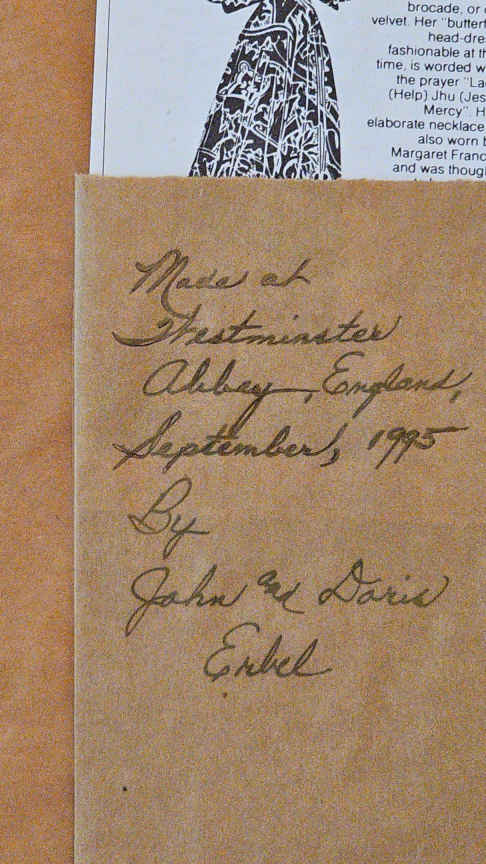 brocade, or
velvet. Her "butterf
head-dre
fashionable at th
time, is worded w
the prayer "La
(Help) Jhu (Jes
Mercy". H
elaborate necklace
also worn b
Margaret Franc
and was though
Made at
Westminster
Abbey, England,
September, 1995
By
John and Doris
Erbel